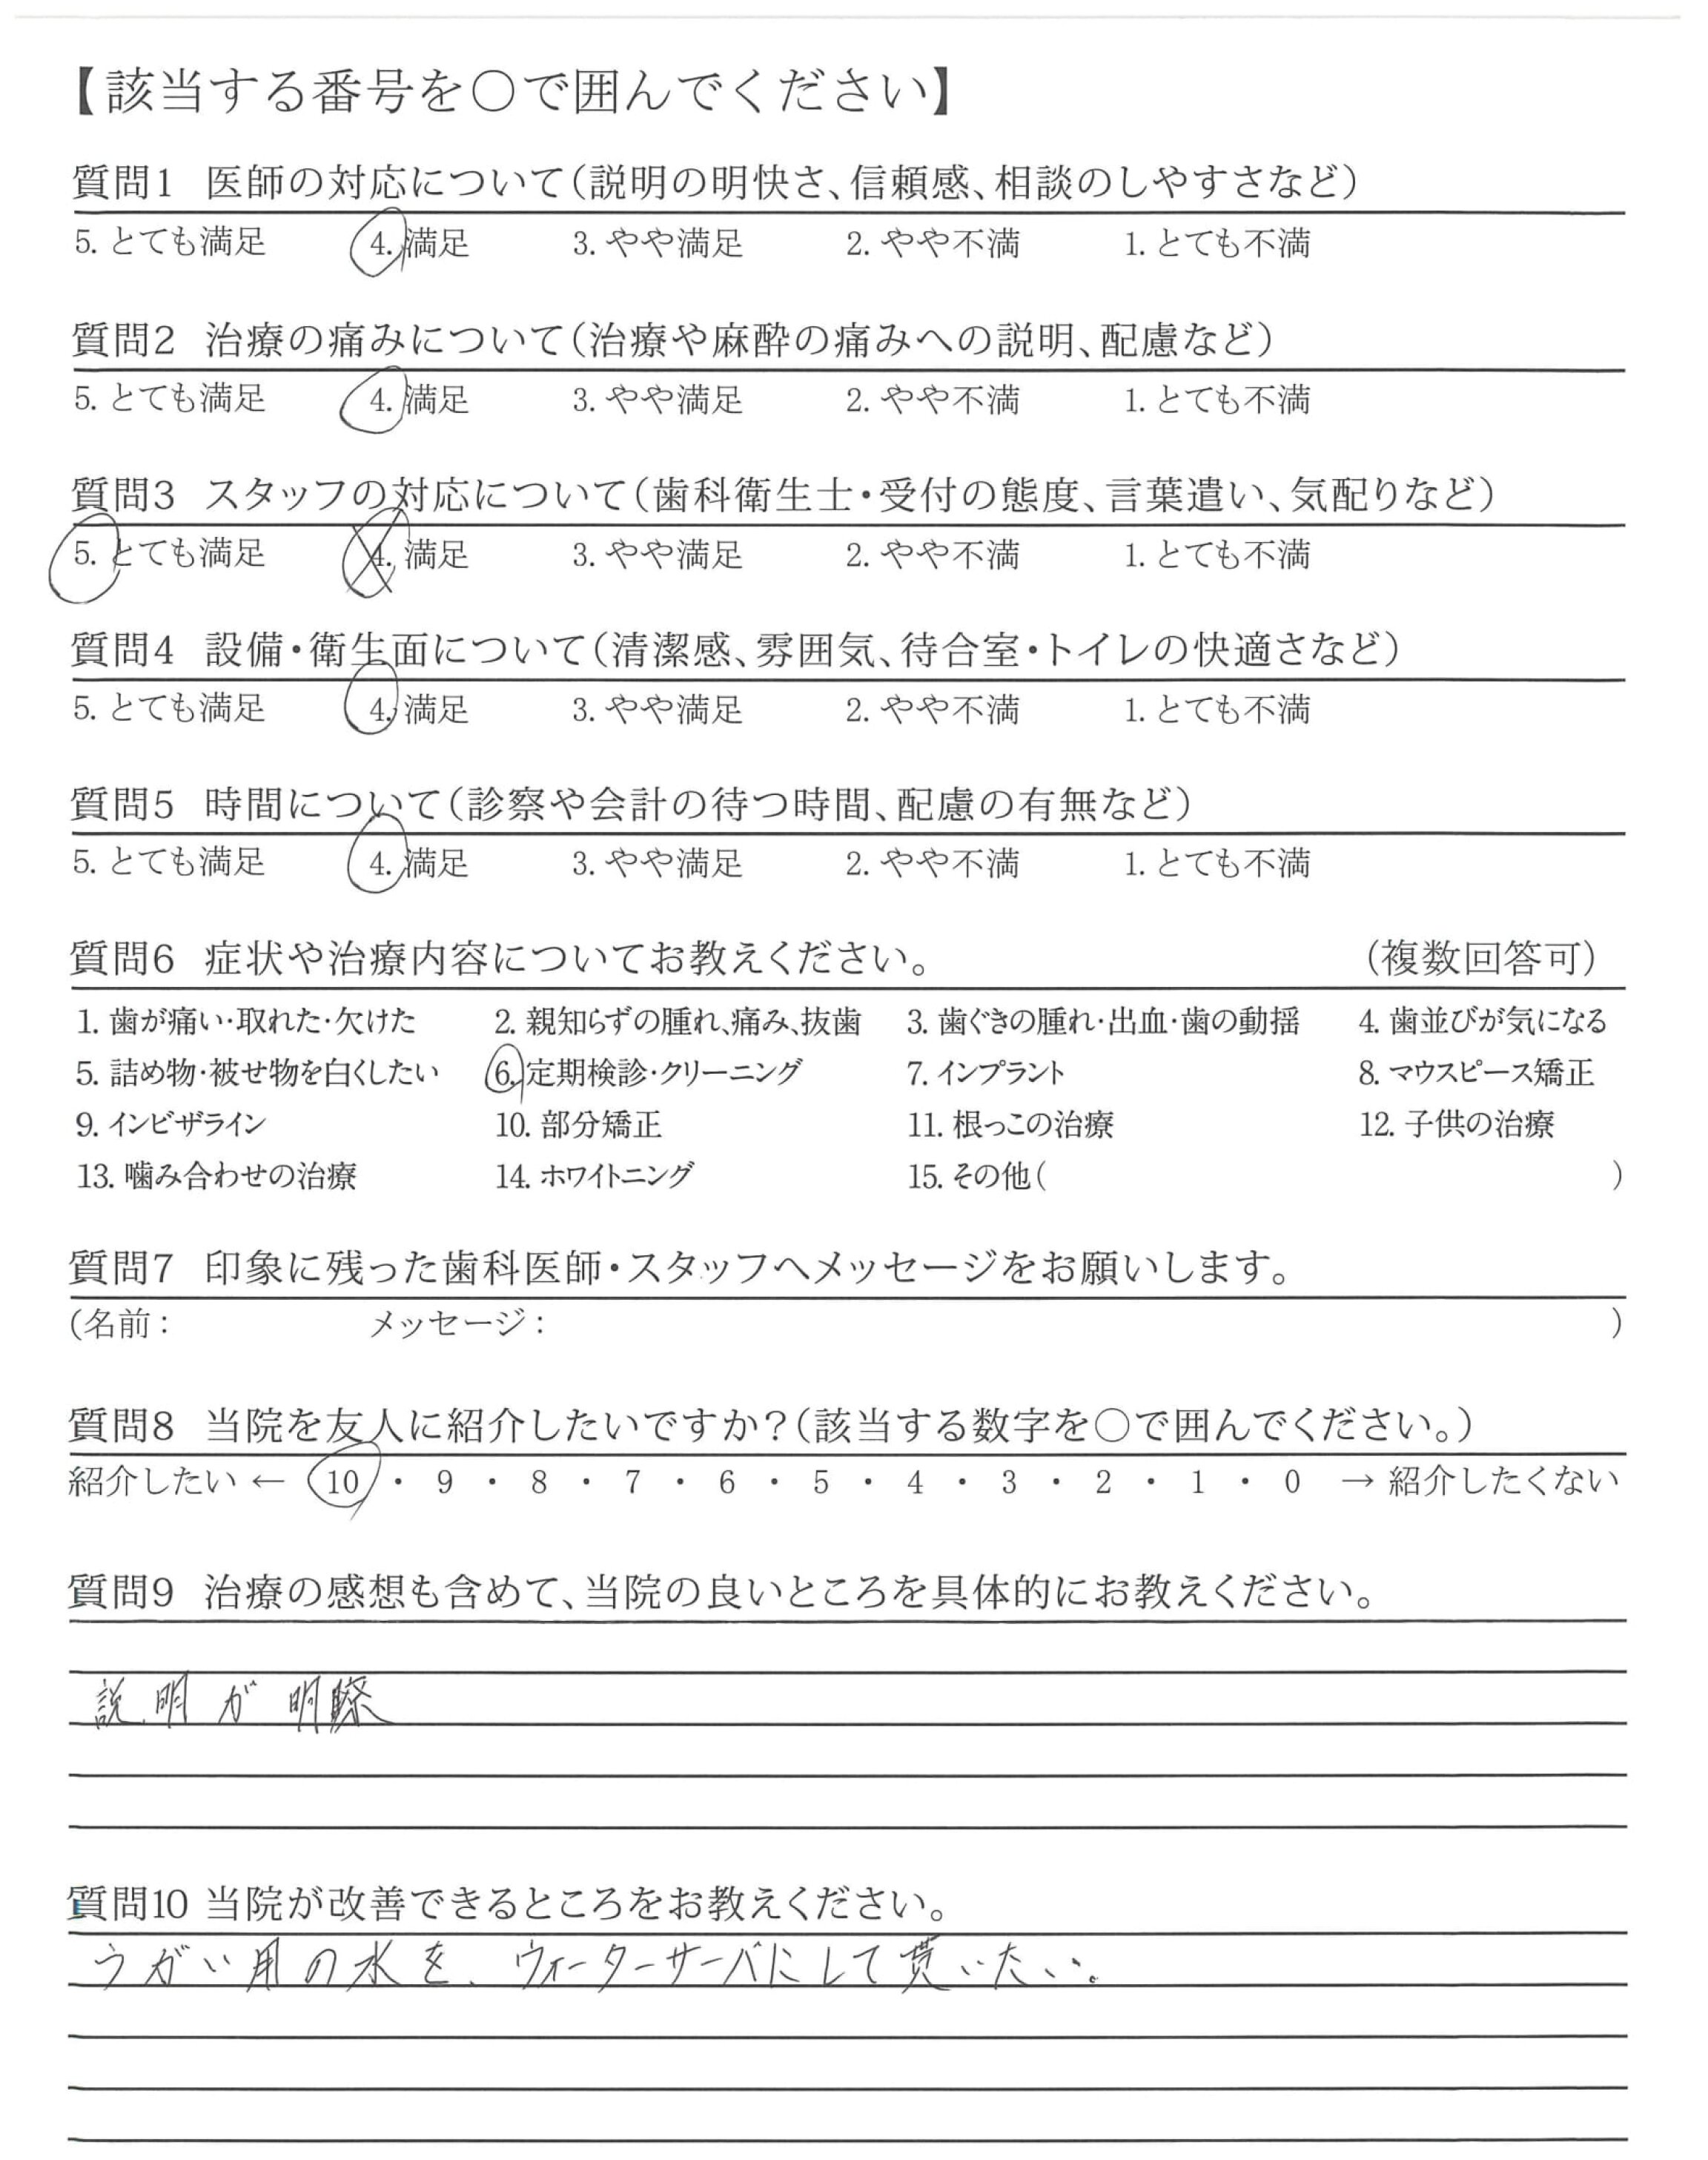 【該当する番号を○で囲んでください】
質問1 医師の対応について(説明の明快さ、信頼感、相談のしやすさなど)
5. とても満足 4. 満足 3. やや満足 2. やや不満 1. とても不満
質問2 治療の痛みについて(治療や麻酔の痛みへの説明、配慮など)
5. とても満足 4. 満足 3. やや満足 2. やや不満 1. とても不満
質問3 スタッフの対応について(歯科衛生士・受付の態度、言葉遣い、気配りなど)
5. とても満足 4. 満足 3. やや満足 2. やや不満 1. とても不満
質問4 設備・衛生面について(清潔感、雰囲気、待合室・トイレの快適さなど)
5. とても満足 4. 満足 3. やや満足 2. やや不満 1. とても不満
質問5 時間について(診察や会計の待つ時間、配慮の有無など)
5. とても満足 4. 満足 3. やや満足 2. やや不満 1. とても不満
質問6 症状や治療内容についてお教えください。 (複数回答可)
1. 歯が痛い・取れた・欠けた 2. 親知らずの腫れ、痛み、抜歯 3. 歯ぐきの腫れ・出血・歯の動揺 4. 歯並びが気になる
5. 詰め物・被せ物を白くしたい 6. 定期検診・クリーニング 7. インプラント 8. マウスピース矯正
9. インビザライン 10. 部分矯正 11. 根っこの治療 12. 子供の治療
13. 噛み合わせの治療 14. ホワイトニング 15. その他( )
質問7 印象に残った歯科医師・スタッフへメッセージをお願いします。
(名前: メッセージ: )
質問8 当院を友人に紹介したいですか?(該当する数字を○で囲んでください。)
紹介したい ← 10 ・ 9 ・ 8 ・ 7 ・ 6 ・ 5 ・ 4 ・ 3 ・ 2 ・ 1 ・ 0 → 紹介したくない
質問9 治療の感想も含めて、当院の良いところを具体的にお教えください。
説明が明瞭
質問10 当院が改善できるところをお教えください。
うがい用の水を、ウォーターサーバにして貰いたい。